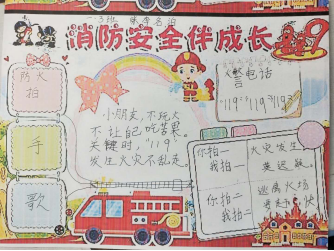 一.3班
消防安全伴成长
防火
拍
手
歌
小朋友，不玩火
不让自己吃苦果。
关键时，"119"
发生火灾不乱走。
警电话
"119" "119" "119"
你拍一
我拍一
火灾发生
莫迟疑。
你拍二
我拍二
逃离火场
快